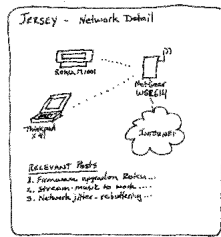 JERSEY - Network Detail
Roku M1001
NetGear
WGR614
Thinkpad
X41
INTERNET
RELEVANT Posts
1. Firmware upgrade on Roku...
2. Stream-music to mode....
3. Network jitter - rebuffering...